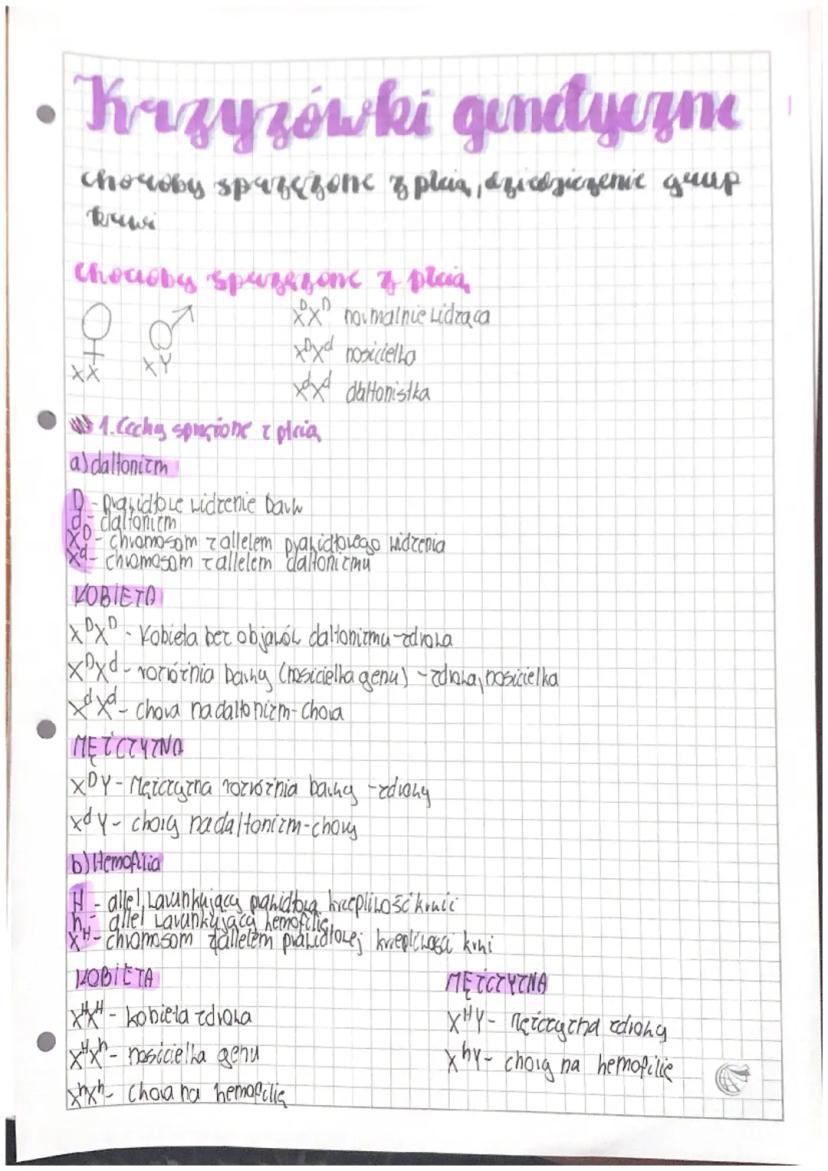 Krzyżówki genetyczne
choroby sprzężone z płcią, dziedziczenie grup
krwi
choroby sprzężone z płcią
XX
XY
XᴰXᴰ normalnie widząca
XᴰXᵈ nosicielka
XᵈXᵈ daltonistka
1. Cechy sprzężone z płcią
a) daltonizm
D - prawidłowe widzenie barw
d - daltonizm
Xᴰ - chromosom z allelem prawidłowego widzenia
Xᵈ - chromosom z allelem daltonizmu
KOBIETA
XᴰXᴰ - Kobieta bez objawów daltonizmu - zdrowa
XᴰXᵈ - rozróżnia barwy (nosicielka genu) - zdrowa, nosicielka
XᵈXᵈ - chora na daltonizm - chora
MĘŻCZYZNA
XᴰY - Mężczyzna rozróżnia barwy - zdrowy
XᵈY - chory na daltonizm - chory
b) Hemofilia
H - allel warunkujący prawidłową krzepliwość krwi
h - allel warunkujący hemofilię
Xᴴ - chromosom z allelem prawidłowej krzepliwości krwi
KOBIETA
XᴴXᴴ - kobieta zdrowa
XᴴXʰ - nosicielka genu
XʰXʰ - chora na hemofilię
MĘŻCZYZNA
XᴴY - Mężczyzna zdrowy
XʰY - chory na hemofilię